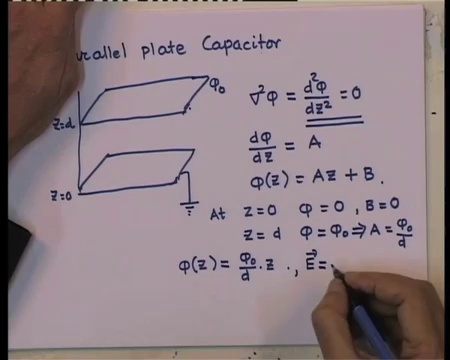 rallel plate Capacitor
φ₀
z=d
z=0
∇²φ = d²φ/dz² = 0
dφ/dz = A
φ(z) = Az + B.
At z=0 φ=0 , B=0
z=d φ=φ₀ ⇒ A = φ₀/d
φ(z) = φ₀/d . z . , E⃗ =